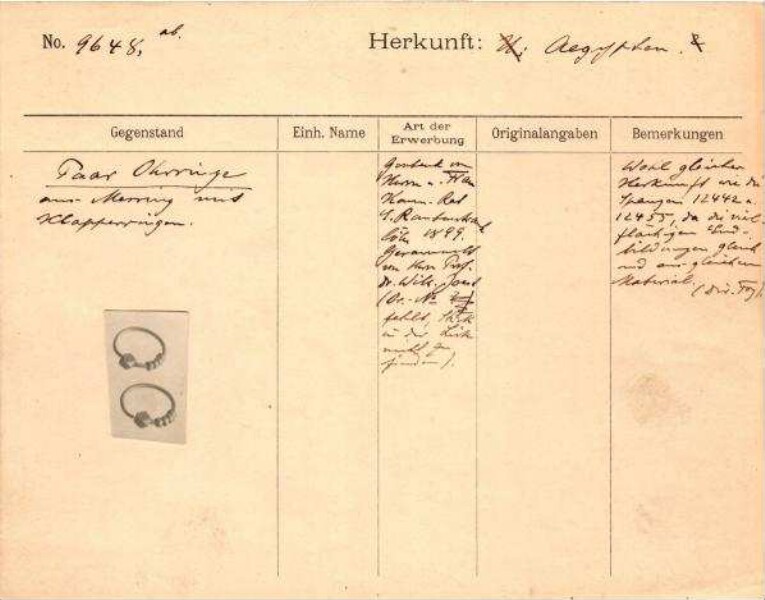 No. 9648, ab.
Herkunft: Aegypten.
Gegenstand
Einh. Name
Art der
Erwerbung
Originalangaben
Bemerkungen
Paar Ohrringe
aus Messing mit
Klapperringen.
Geschenk von
Herrn u. Frau
Komm. Rat
E. Rautenstrauch
Cöln 1899.
Gesammelt
von Herrn Prof.
Dr. Wilh. Joest
(Or. - No
fehlt, Stück
in der Liste
nicht zu
finden).
Wohl gleicher
Herkunft wie die
Spangen 12442 u.
12455, da die viel-
flächigen End-
bildungen gleich
und aus gleichem
Material.
(Dir. Foy).